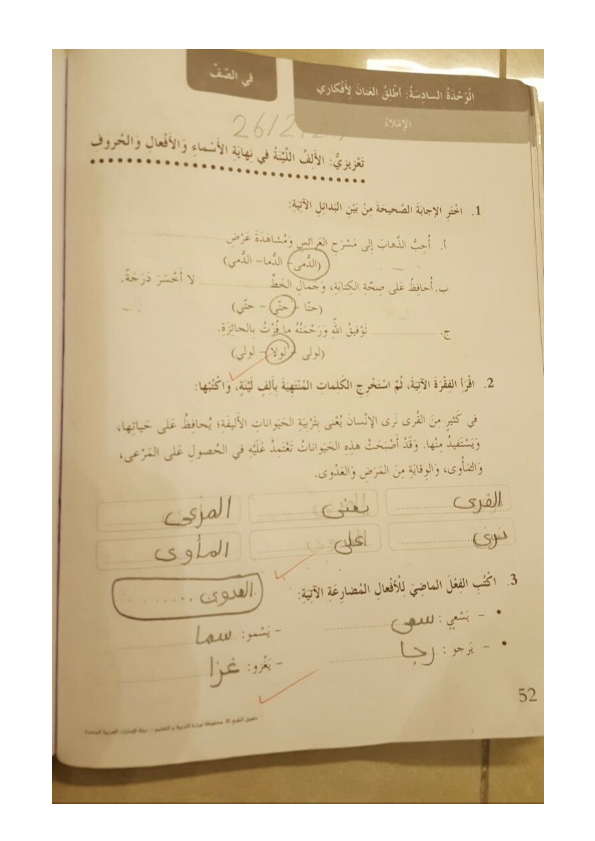 في الصّفّ
الْوَحْدَةُ السادِسَةُ: أُطْلِقُ العَنانَ لِأَفْكاري
الإمْلاءُ
26/2/
تَعْزيزيٌّ: الأَلِفُ اللَّيِّنَةُ في نِهايَةِ الأَسْماءِ وَالأَفْعالِ وَالحُروفِ
1. اخْتَرِ الإجابَةَ الصَّحيحَةَ مِنْ بَيْنِ البَدائِلِ الآتِيَةِ:
أ. أُحِبُّ الذَّهابَ إلى مَسْرَحِ العَرائِسِ وَمُشاهَدَةَ عَرْضِ ..........
(الدُّمى - الدُّما - الدُّمي)
ب. أُحافِظُ عَلى صِحَّةِ الكِتابَةِ، وَجَمالِ الخَطِّ .......... لا أَخْسَرَ دَرَجَةً.
(حتّا - حتّى - حتّي)
ج. .......... تَوْفيقُ اللَّهِ وَرَحْمَتُهُ ما فُزْتُ بِالجائِزَةِ.
(لولى - لولا - لولي)
2. اقْرَأ الفِقْرَةَ الآتِيَةَ، ثُمَّ اسْتَخْرِجِ الكَلِماتِ المُنْتَهِيَةَ بِأَلِفٍ لَيِّنَةٍ، وَاكْتُبْها:
في كَثيرٍ مِنَ القُرى نَرى الإنْسانَ يُعْنى بِتَرْبِيَةِ الحَيَواناتِ الأَليفَةِ؛ يُحافِظُ عَلى حَياتِها،
وَيَسْتَفيدُ مِنْها. وَقَدْ أَصْبَحَتْ هذِهِ الحَيَواناتُ تَعْتَمِدُ عَلَيْهِ في الحُصولِ عَلى المَرْعى،
وَالمَأْوى، وَالوِقايَةِ مِنَ المَرَضِ وَالعَدْوى.
القرى يعنى المرعى
نرى على المأوى
العدوى
3. اكْتُبِ الفِعْلَ الماضِيَ لِلْأَفْعالِ المُضارِعَةِ الآتِيَةِ:
• - يَسْعى: سعى - يَسْمو: سما
• - يَرْجو: رجا - يَغْزو: غزا
52
حقوق الطبع © محفوظة لوزارة التربية و التعليم - دولة الإمارات العربية المتحدة